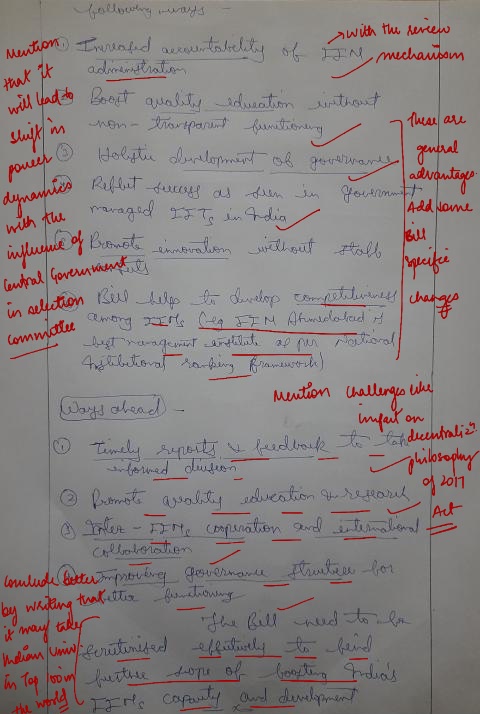 following ways -
① Increased accountability of IIM
administration
→ with the review
mechanism
Boost quality education without
non-transparent functioning
③ Holistic development of governance
Reflect success as seen in government
managed IITs in India
Promote innovation without staff
Bill help to develop competitiveness
among IIMs (eg IIM Ahmedabad is
best management institute as per National
Institutional ranking framework)
Mention
that it
will lead to
shift in
power
dynamics
with the
influence of
Central Government
in selection
committee
These are
general
advantages.
Add some
Bill
specific
changes
Mention challenges like
impact on
philosophy
of 2017
Act
Ways ahead -
① Timely reports & feedback to take
informed decision
② Promote quality education & research
③ Inter-IIMs cooperation and international
collaboration
Improving governance structure for
better functioning
The Bill need to be
scrutinised effectively to
further scope of boosting India's
IIMs capacity and development
Conclude better
by writing that
it may take
Indian Univ.
in Top 100 in
the world